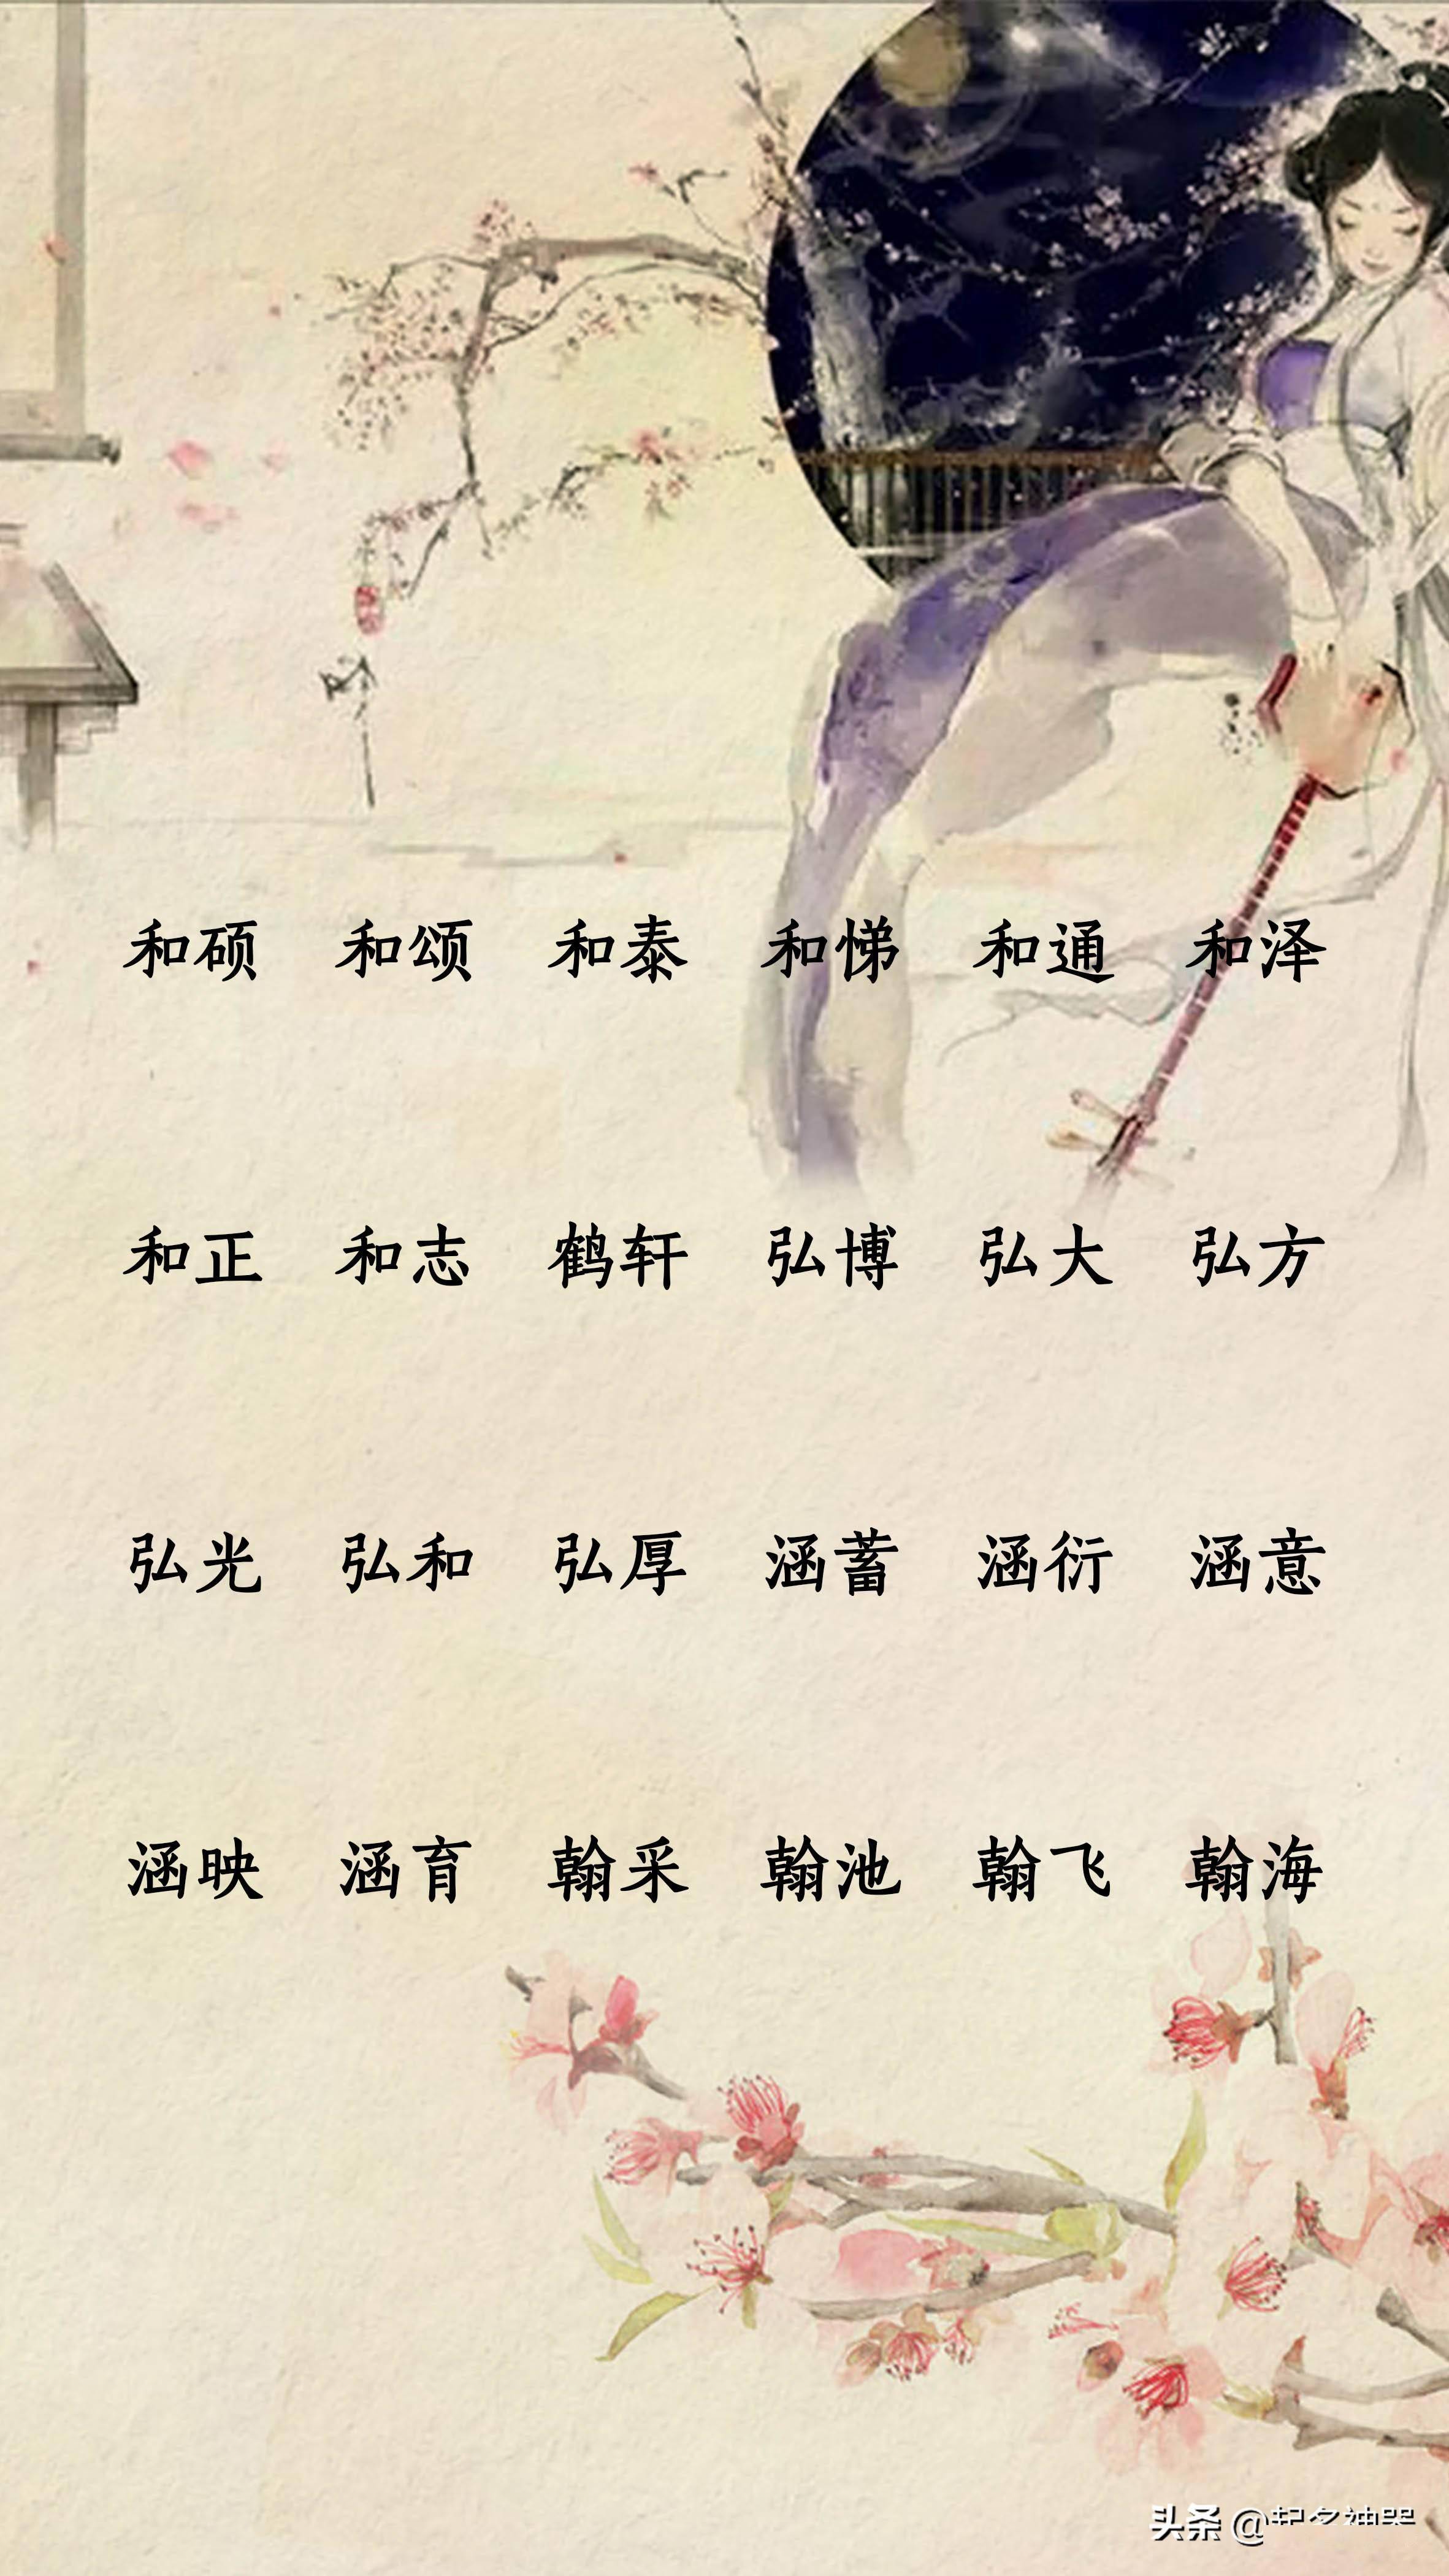 和硕 和颂 和泰 和悌 和通 和泽
和正 和志 鹤轩 弘博 弘大 弘方
弘光 弘和 弘厚 涵蓄 涵衍 涵意
涵映 涵育 翰采 翰池 翰飞 翰海
头条 @起名神器